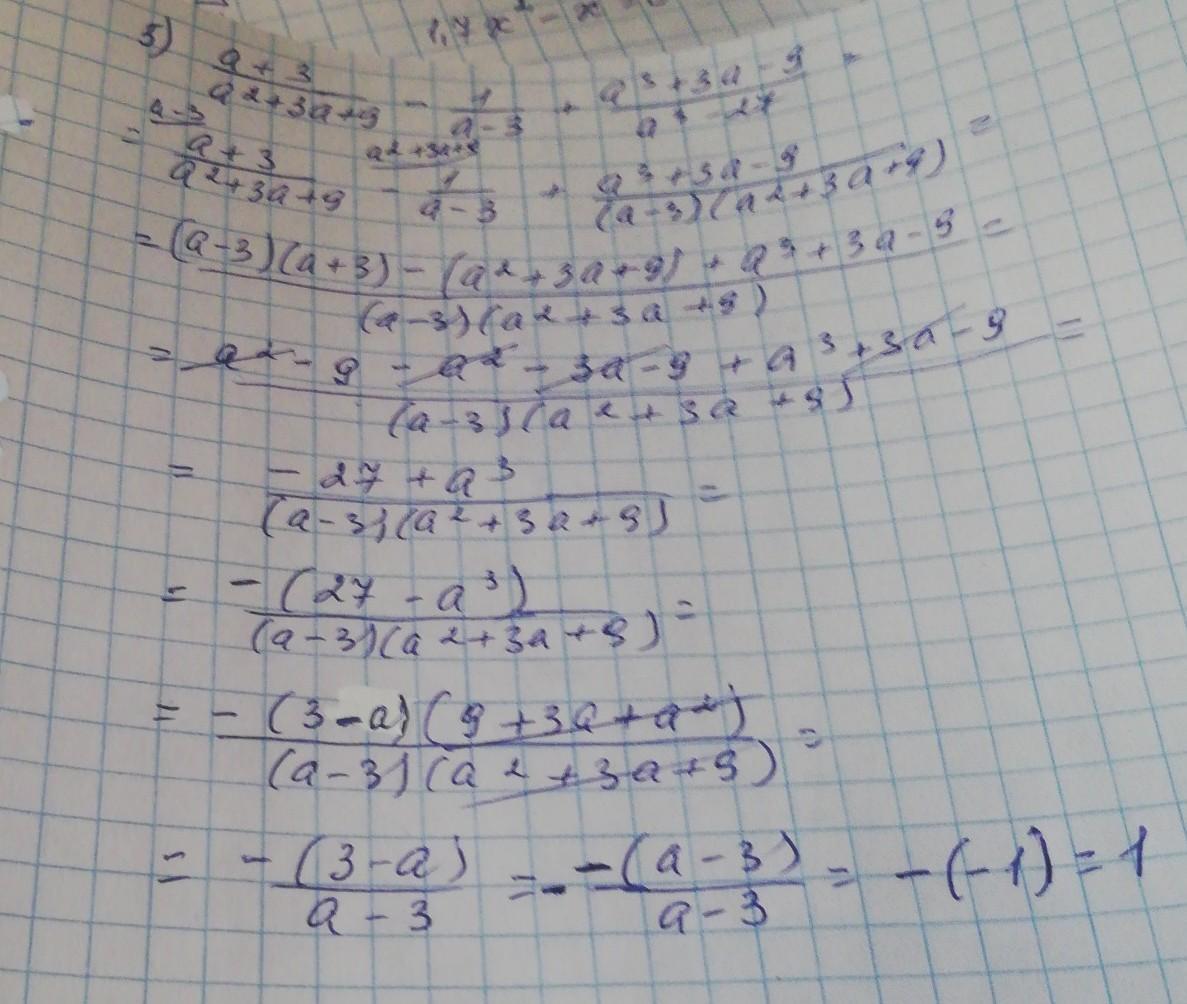 1,7 x² - x
5) (a+3)/(a²+3a+9) - 1/(a-3) + (a³+3a-9)/(a³-27) =
a-3 a²+3a+9
= (a+3)/(a²+3a+9) - 1/(a-3) + (a³+3a-9)/((a-3)(a²+3a+9)) =
= ((a-3)(a+3) - (a²+3a+9) + a³+3a-9)/((a-3)(a²+3a+9)) =
= (a²-9-a²-3a-9+a³+3a-9)/((a-3)(a²+3a+9)) =
= (-27+a³)/((a-3)(a²+3a+9)) =
= -(27-a³)/((a-3)(a²+3a+9)) =
= -(3-a)(9+3a+a²)/((a-3)(a²+3a+9)) =
= -(3-a)/(a-3) = - -(a-3)/(a-3) = -(-1) = 1